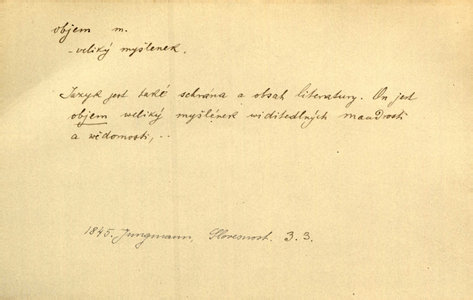 objem m.
-veliký myšlenek.
Jazyk jest také schrána a obsah literatury. On jest
objem weliký myšlének widitedlných maudrosti
a wědomosti, ..
1845. Jungmann, Slovesnost. 3.3.